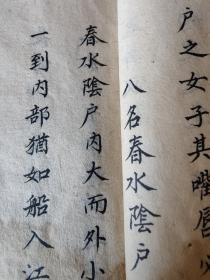 户之女子其嘴唇
八名春水陰户
春水陰户内大而外小
一到内部猶如船入江